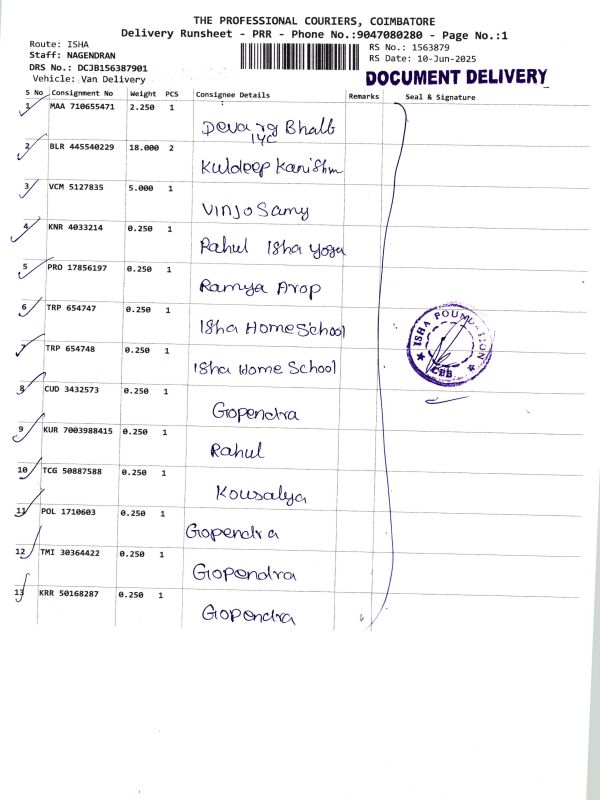 THE PROFESSIONAL COURIERS, COIMBATORE
Delivery Runsheet - PRR - Phone No.:9047080280 - Page No.:1
Route: ISHA
Staff: NAGENDRAN
DRS No.: DCJB156387901
Vehicle: Van Delivery
RS No.: 1563879
RS Date: 10-Jun-2025
DOCUMENT DELIVERY
S No Consignment No Weight PCS Consignee Details Remarks Seal & Signature
1 MAA 710655471 2.250 1
Devarg Bhalb
IYC
2 BLR 445540229 18.000 2
Kuldeep Kanishm
3 VCM 5127835 5.000 1
Vinjo Samy
4 KNR 4033214 0.250 1
Rahul Isha Yoga
5 PRO 17856197 0.250 1
Ramya Arop
6 TRP 654747 0.250 1
Isha Home School
7 TRP 654748 0.250 1
Isha Home School
8 CUD 3432573 0.250 1
Gopendra
9 KUR 7003988415 0.250 1
Rahul
10 TCG 50887588 0.250 1
Kousalya
11 POL 1710603 0.250 1
Gopendra
12 TMI 30364422 0.250 1
Gopendra
13 KRR 50168287 0.250 1
Gopendra
ISHA FOUNDATION
CBB